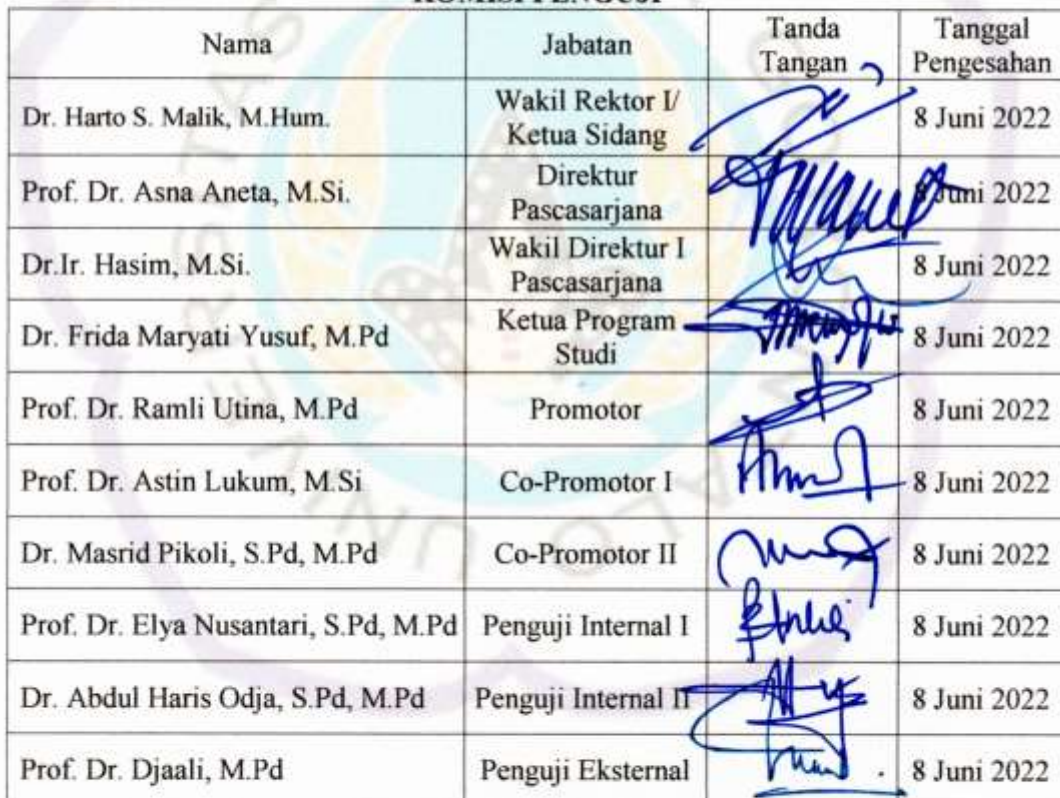 KOMISI PENGUJI
Nama Jabatan Tanda Tangan Tanggal Pengesahan
Dr. Harto S. Malik, M.Hum. Wakil Rektor I/ Ketua Sidang 8 Juni 2022
Prof. Dr. Asna Aneta, M.Si. Direktur Pascasarjana 8 Juni 2022
Dr.Ir. Hasim, M.Si. Wakil Direktur I Pascasarjana 8 Juni 2022
Dr. Frida Maryati Yusuf, M.Pd Ketua Program Studi 8 Juni 2022
Prof. Dr. Ramli Utina, M.Pd Promotor 8 Juni 2022
Prof. Dr. Astin Lukum, M.Si Co-Promotor I 8 Juni 2022
Dr. Masrid Pikoli, S.Pd, M.Pd Co-Promotor II 8 Juni 2022
Prof. Dr. Elya Nusantari, S.Pd, M.Pd Penguji Internal I 8 Juni 2022
Dr. Abdul Haris Odja, S.Pd, M.Pd Penguji Internal II 8 Juni 2022
Prof. Dr. Djaali, M.Pd Penguji Eksternal 8 Juni 2022